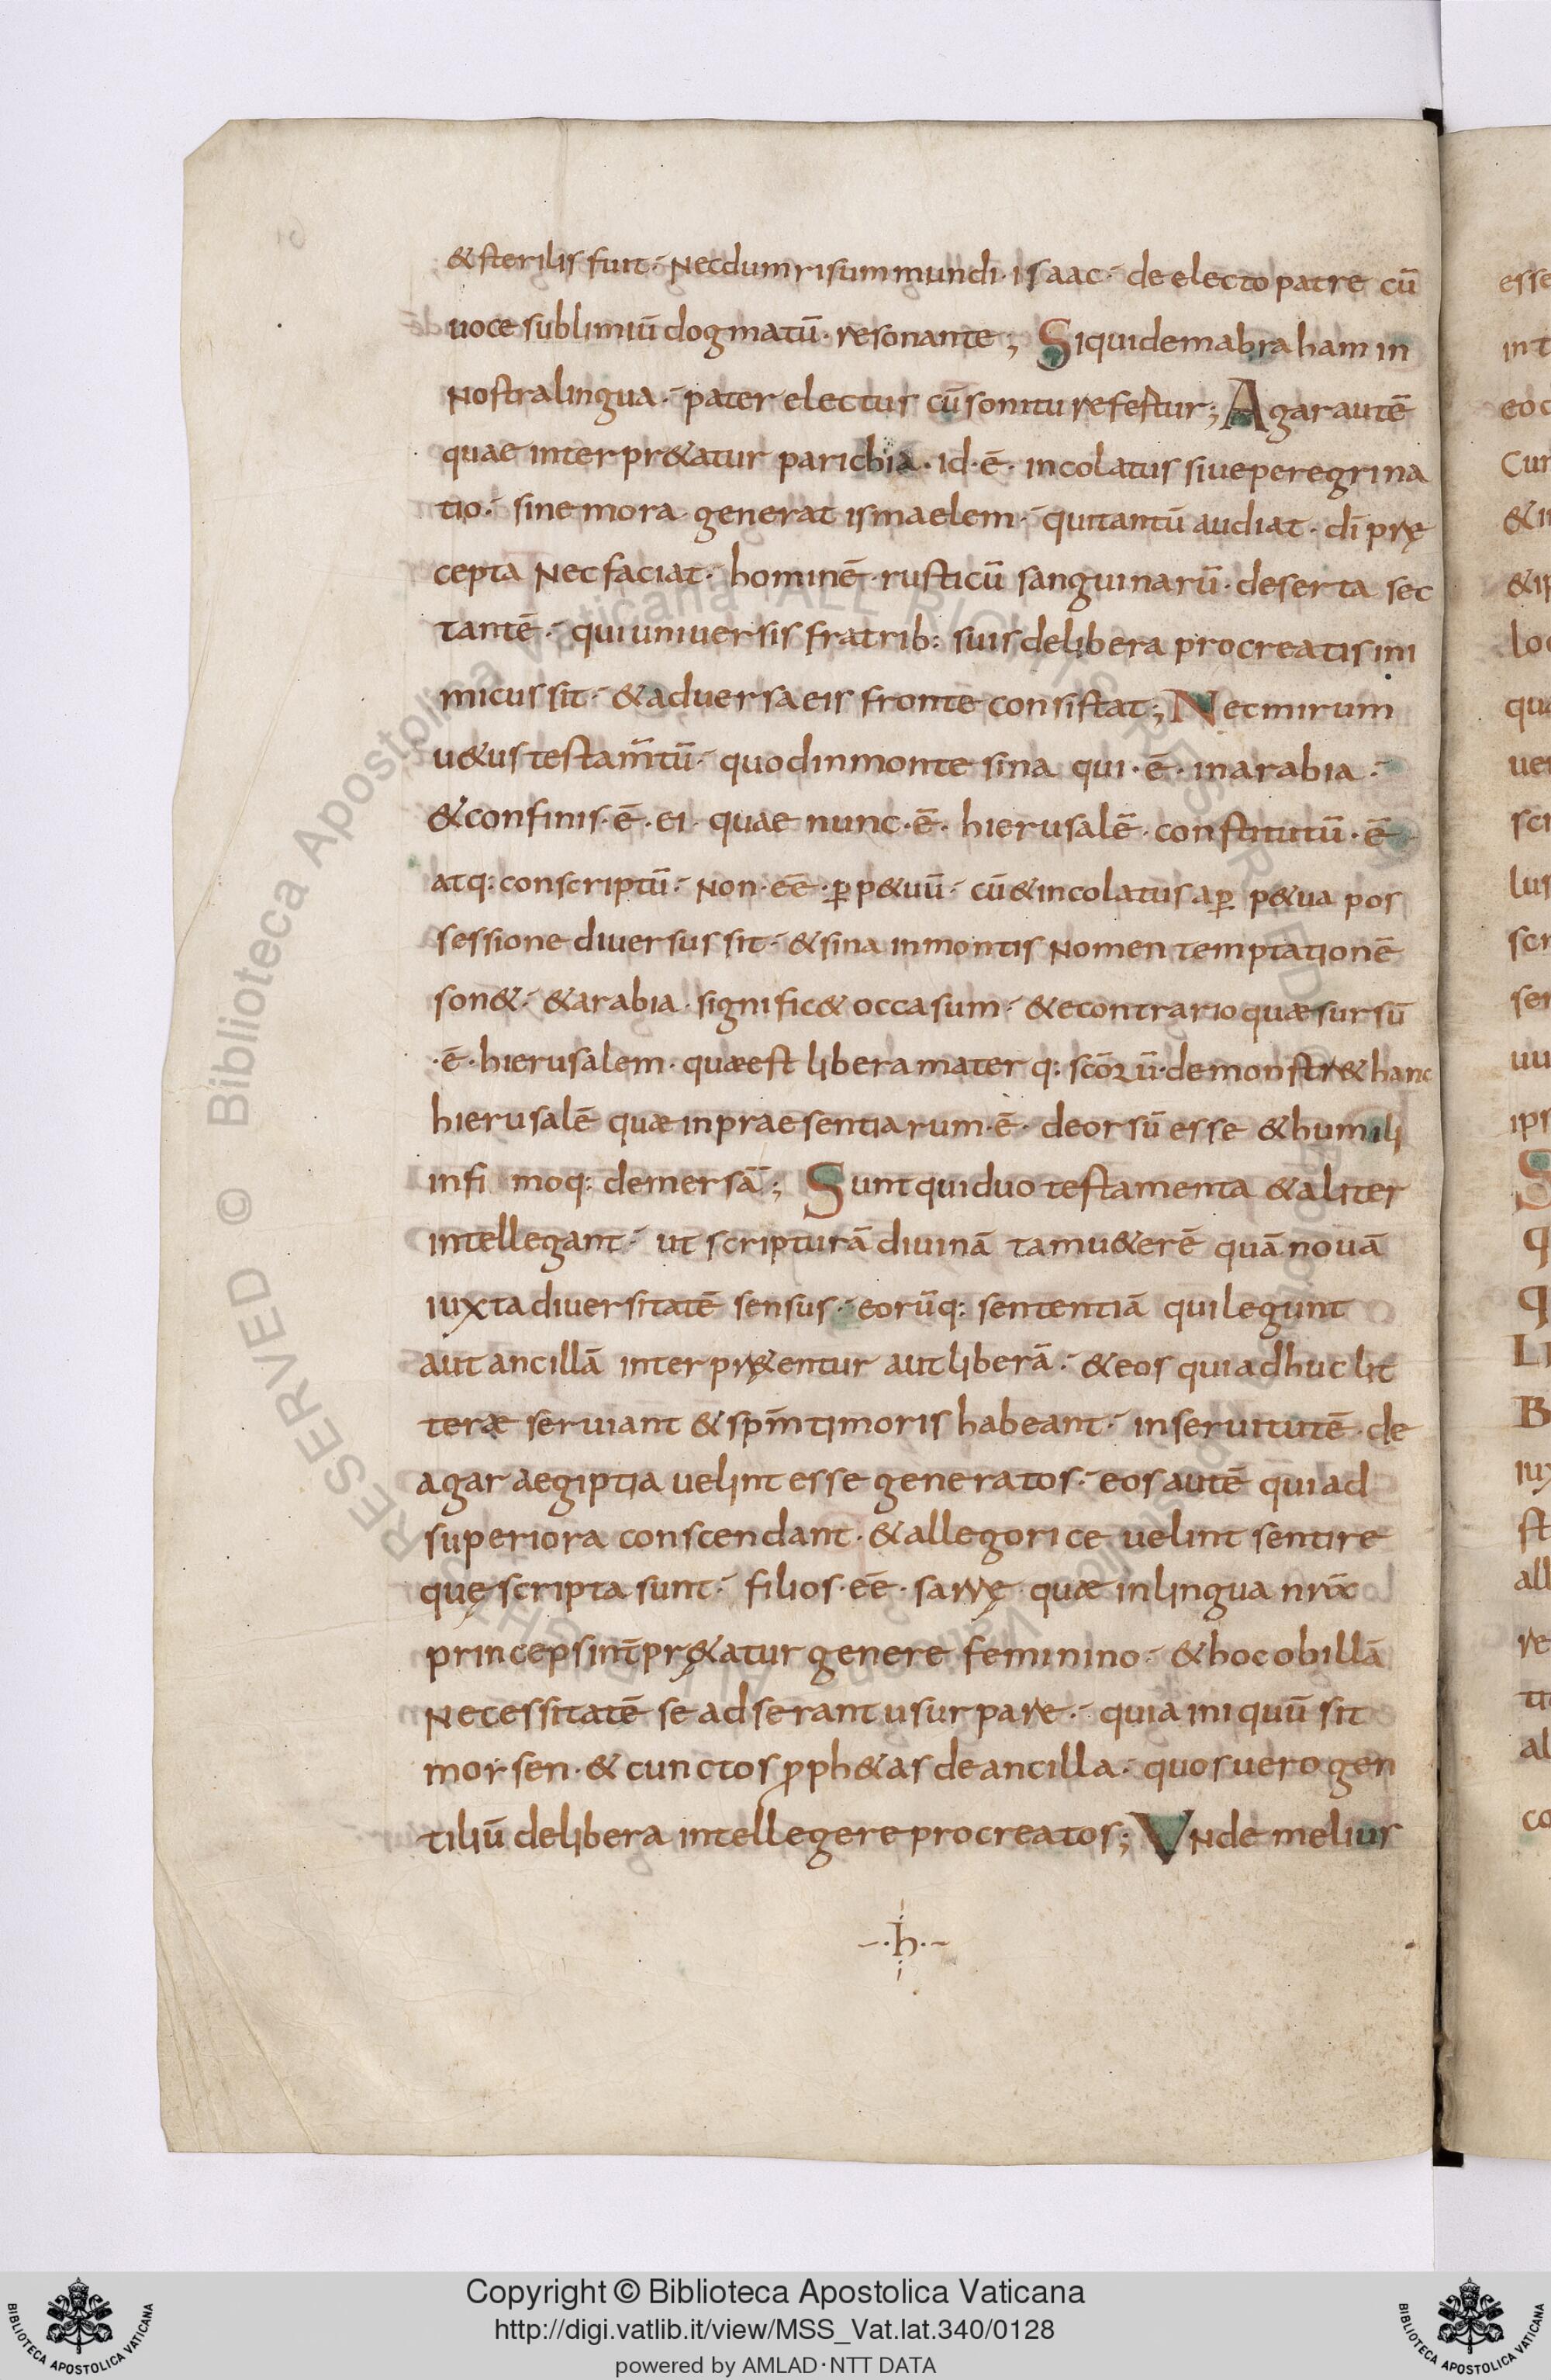 & sterilis fuit · Nec dum risum mundi · isaac · de electo patre cū
uoce sublimiū dogmatū · resonante ; Siquidem abraham in
Nostra lingua · pater electus cū sonitu refertur ; Agar autē
quae interpr&atur parichia · id · ē · incolatus siue peregrina
tio · sine mora generat ismaelem · qui tantū audiat · dī prę
cepta Nec faciat · hominē · rusticū sanguinariū · deserta sec
tantē · qui uniuersis fratrib: suis de libera procreatis ini
micus sit · & aduersa eis fronte consistat ; Nec mirum
u&us testam̄tū · quod in monte sina qui · ē · in arabia ·
& confinis · ē · ei · quae nunc · ē · hierusalē · constitutū · ē
atq: conscriptū · Non · eē · ꝑp&uū · cū & incolatus a ꝑ p&ua pos
sessione diuersus sit · & sina in montis Nomen temptationē
son& · & arabia · signific& occasum · & econtrario quæ sursū
· ē · hierusalem · quæ est libera mater q: scōꝝ ū · demonstr& hanc
hierusalē quæ in praesentiarum · ē · deorsū esse & humili
infi moq: demersā ; Sunt qui duo testamenta & aliter
intellegant · ut scripturā diuinā tam u&erē quā nouā
iuxta diuersitatē sensus · eorūq: sententiā qui legunt
aut ancillā interpr&entur aut liberā · & eos qui adhuc lit
teræ seruiant & sp̄m timoris habeant · in seruitutē · de
agar aegiptia uelint esse generatos · eos autē qui ad
superiora conscendant · & allegorice uelint sentire
quę scripta sunt · filios · eē · sarrę · quæ in lingua nr̄a
princeps int̄pr&atur genere feminino · & hoc ob illā
Necessitatē se adserant usurpare · quia iniquū sit
morsen · & cunctos ꝓph&as de ancilla · quos uero gen
tiliū de libera intellegere procreatos ; VNde melius
· h ·
Copyright © Biblioteca Apostolica Vaticana
http://digi.vatlib.it/view/MSS_Vat.lat.340/0128
powered by AMLAD · NTT DATA